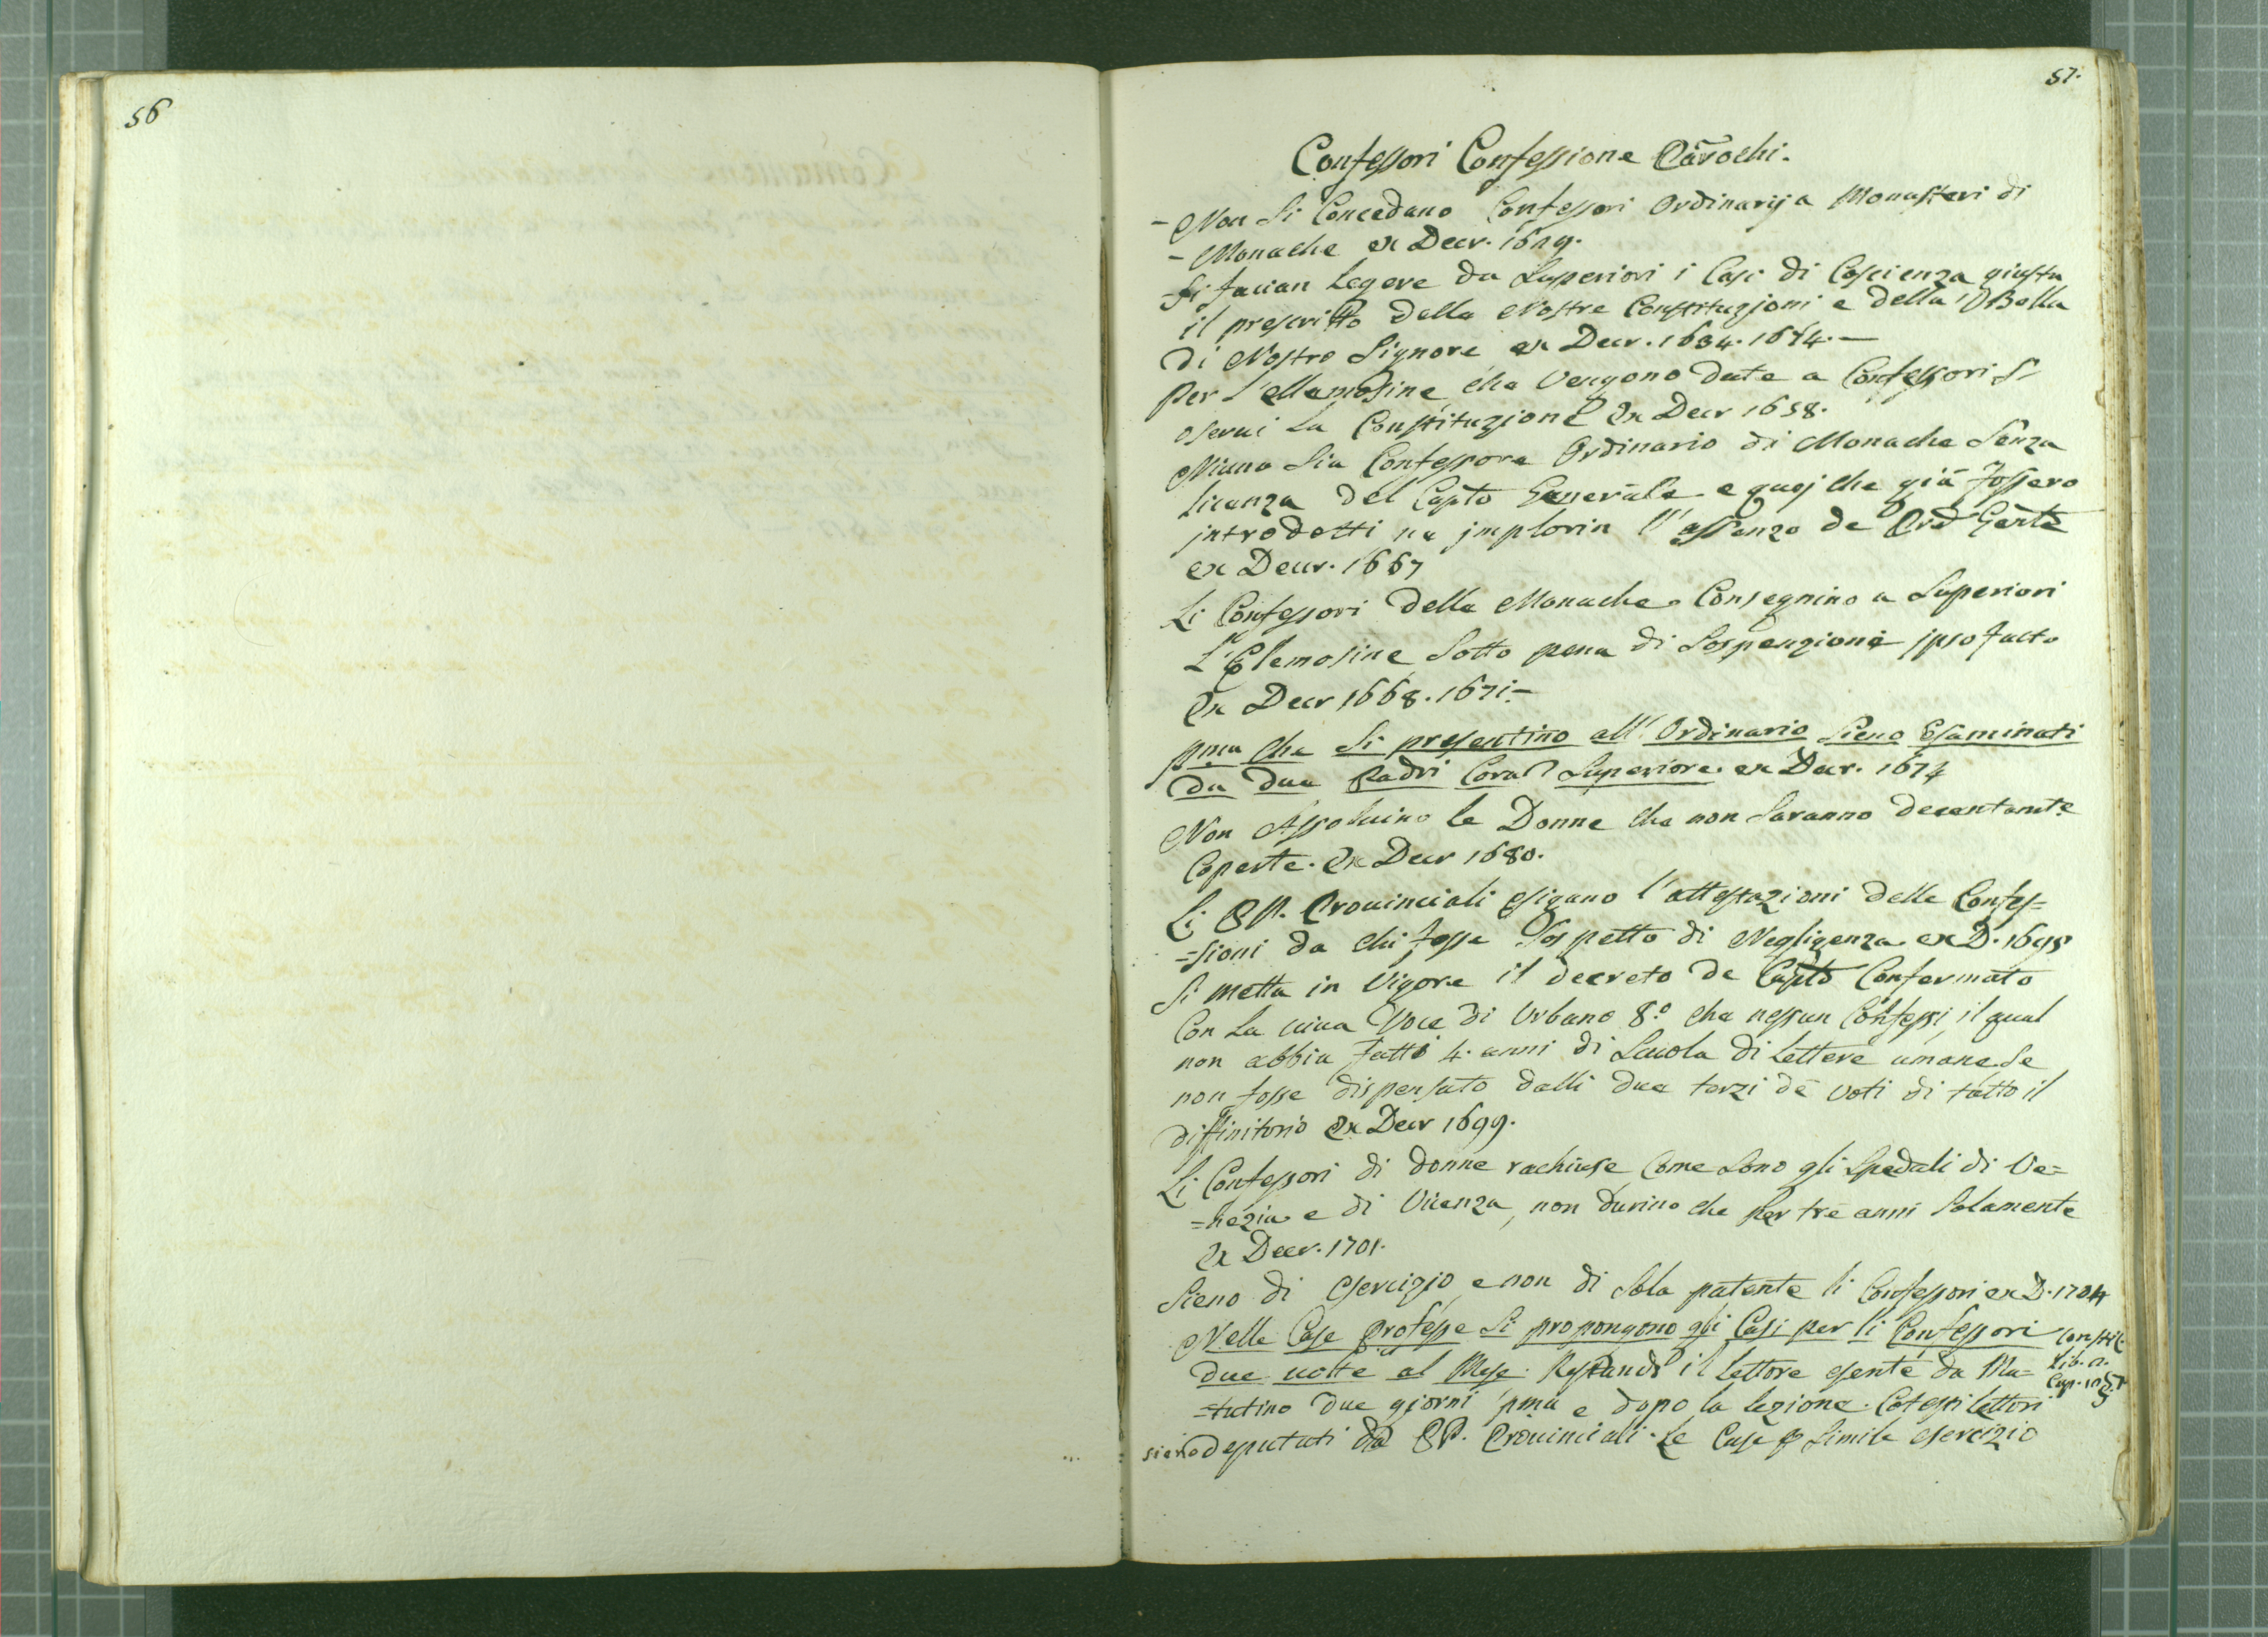 56
57.
Confessori Confessione Parochi.
- Non si Concedano Confessori Ordinarij a Monasteri di
- Monache ex Decr. 1629.
- Si facian legere da Superiori i Casi di Coscienza giusta
il prescritto delle Nostre Constituzioni e della Bolla
di Nostro Signore ex Decr. 1634. 1674. -
Per l'ellemosine che Vengono date a Confessori si
oservi La Constituzione Ex Decr 1658.
Niuno Sia Confessore Ordinario di Monache Senza
licenza del Capto Generale e quej che già fossero
introdotti ne jmplorin l'assenzo de Prd Gente
ex Decr. 1667
Li Confessori delle Monache Consegnino a Superiori
L'Elemosine Sotto pena di Sospenzione jpso facto
Ex Decr 1668. 1671. -
pma che si presentino all'Ordinario Sieno Esaminati
da due Padri Coral Superiore ex Decr. 1674
Non Assoluino le Donne che non Saranno decentemte
Coperte. Ex Decr 1680.
Li PP. Prouinciali esigano l'attestazioni delle Confes=
=sioni da chi fosse Sospetto di Negligenza ex D. 1695
Si metta in Vigore il decreto de Capto Confermato
Con La uiua Voce di Urbano 8.º che nessun Confessi, il qual
non abbia fatti 4. anni di Scuola di Lettere umane Se
non fosse dispensato dalli due terzi de voti di tutto il
diffinitorio Ex Decr 1699.
Li Confessori di donne rachiuse, Come Sono gli Spedali di Ve=
=nezia e di Vicenza, non durino che per tre anni Solamente
Ex Decr. 1701.
Sieno di esercizio, e non di Sola patente li Confessori ex D. 1704
Nelle Case Professe Si propongono gli Casi per li Confessori Constit.
due uolte al Mese. Restando il lettore esente da Ma= Lib. 2.
=tutino due giorni pma e dopo la lezione. Cotesti lettori Cap.
sieno deputati da PP. Prouinciali. Le Case p Simile esercizio